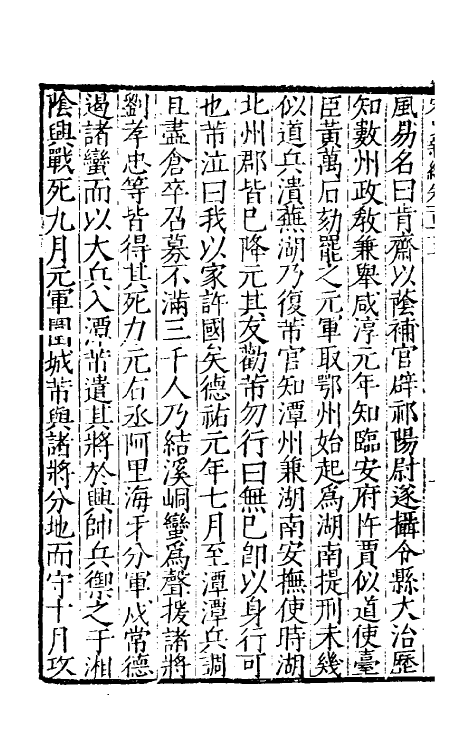 風易名曰肯齋以䕃補官辟祁陽尉遂攝令縣大治歷
知數州政教兼舉咸淳元年知臨安府忤賈似道使臺
臣黃萬石劾罷之元軍取鄂州始起爲湖南提刑未幾
似道兵潰蕪湖乃復芾官知潭州兼湖南安撫使時湖
北州郡皆已降元其友勸芾勿行曰無已卽以身行可
也芾泣曰我以家許國矣德祐元年七月至潭潭兵調
且盡倉卒召募不滿三千人乃結溪峒蠻爲聲援諸將
劉孝忠等皆得其死力元右丞阿里海牙分軍戍常德
遏諸蠻而以大兵入潭芾遣其將於興帥兵禦之于湘
陰興戰死九月元軍圍城芾與諸將分地而守十月攻